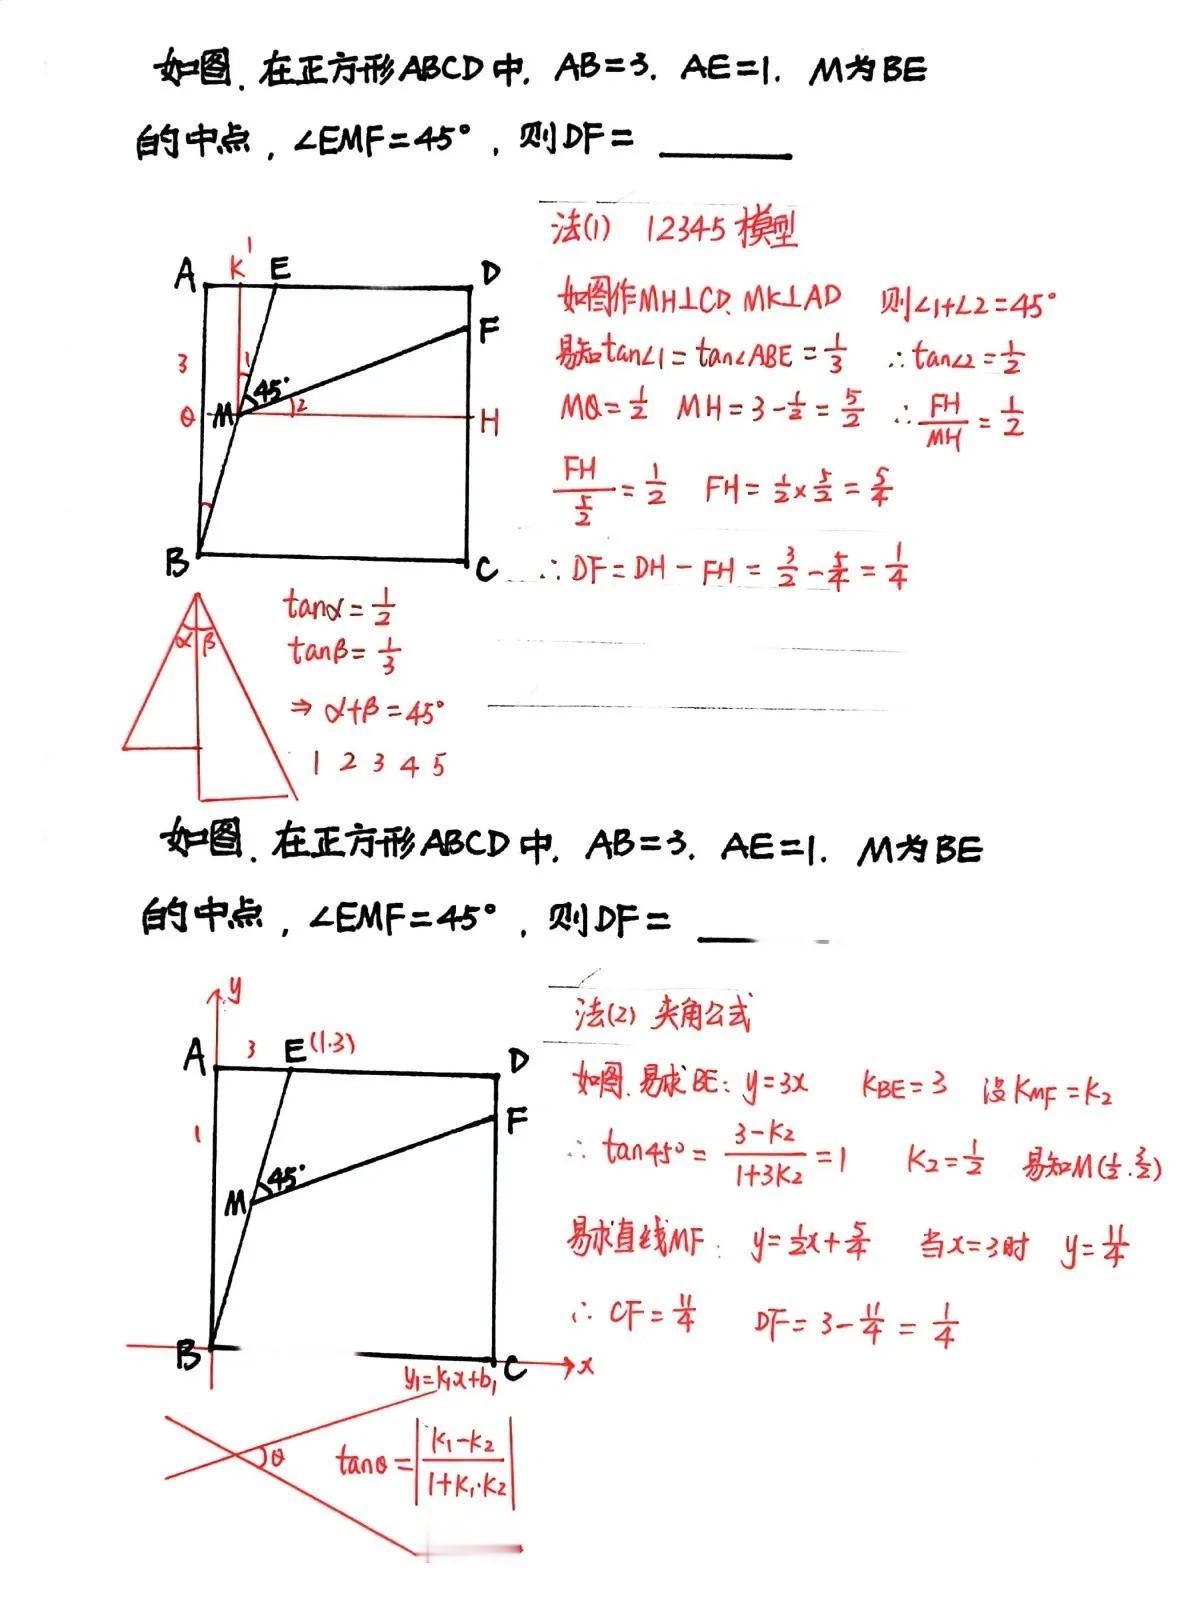 如图. 在正方形ABCD中. AB=3. AE=1. M为BE
的中点, ∠EMF=45°, 则DF= ____
法(1) 12345模型
如图作MH⊥CD、MK⊥AD 则∠1+∠2=45°
易知tan∠1=tan∠ABE=1/3 ∴tan∠2=1/2
MQ=1/2 MH=3-1/2=5/2 ∴FH/MH=1/2
FH/(5/2)=1/2 FH=1/2×5/2=5/4
∴DF=DH-FH=3/2-5/4=1/4
A K 1 E D
F
3
1
45°
2
Q M H
B C
α β
tanα=1/2
tanβ=1/3
⇒ α+β=45°
1 2 3 4 5
如图. 在正方形ABCD中. AB=3. AE=1. M为BE
的中点, ∠EMF=45°, 则DF= ____
法(2) 夹角公式
如图. 易求BE: y=3x K_BE=3 设K_MF=K₂
∴tan45°=(3-K₂)/(1+3K₂)=1 K₂=1/2 易知M(1/2.3/2)
易求直线MF: y=1/2x+5/4 当x=3时 y=11/4
∴CF=11/4 DF=3-11/4=1/4
y
A 3 E (1.3) D
F
1
45°
M
B C x
y₁=k₁x+b₁
θ
tanθ=|(K₁-K₂)/(1+K₁·K₂)|